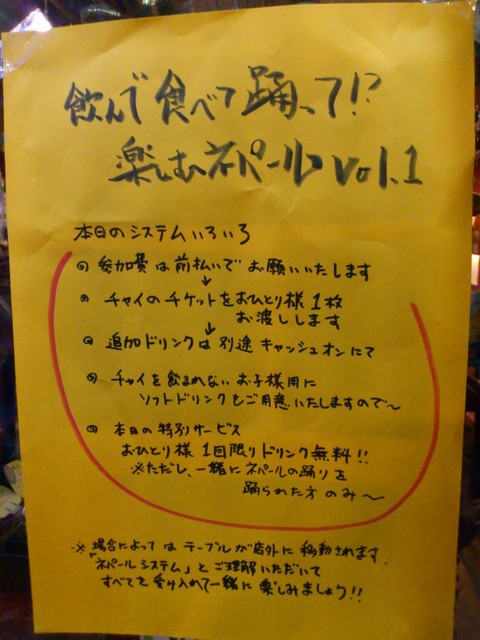 飲んで食べて踊って!?
楽しむネパール vol.1
本日のシステムいろいろ
参加費は前払いでお願いいたします
↓
チャイのチケットをおひとり様1枚
お渡しします
↓
追加ドリンクは別途キャッシュオンにて
チャイを飲まれないお子様用に
ソフトドリンクもご用意いたしますので〜
本日の特別サービス
おひとり様1回限りドリンク無料!!
※ただし、一緒にネパールの踊りを
踊られた方のみ〜
※場合によってはテーブルが店外に移動されます。
「ネパールシステム」とご理解いただいて
すべてを受け入れて一緒に楽しみましょう!!